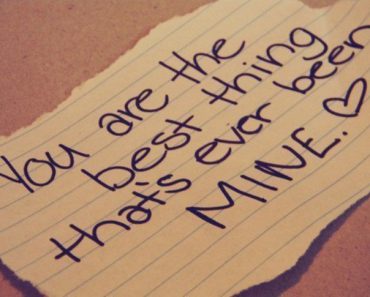 You are the
best thing
that's ever been
MINE.♡